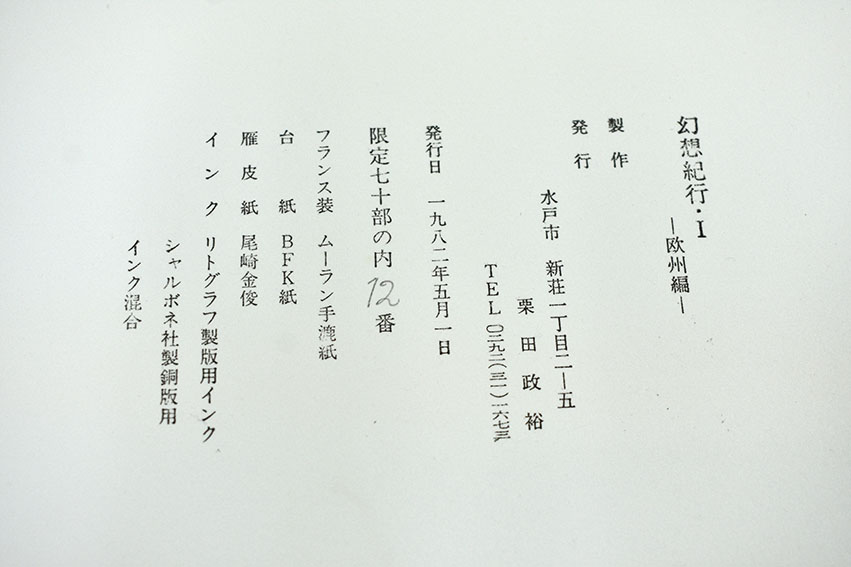 幻想紀行・I
―欧州編―
製作
発行
水戸市 新荘一丁目二―五
栗田政裕
TEL 〇二九二(三一)一六七三
発行日 一九八二年五月一日
限定七十部の内 12 番
フランス装 ムーラン手漉紙
台紙 BFK紙
雁皮紙 尾崎金俊
インク リトグラフ製版用インク
シャルボネ社製銅版用
インク混合